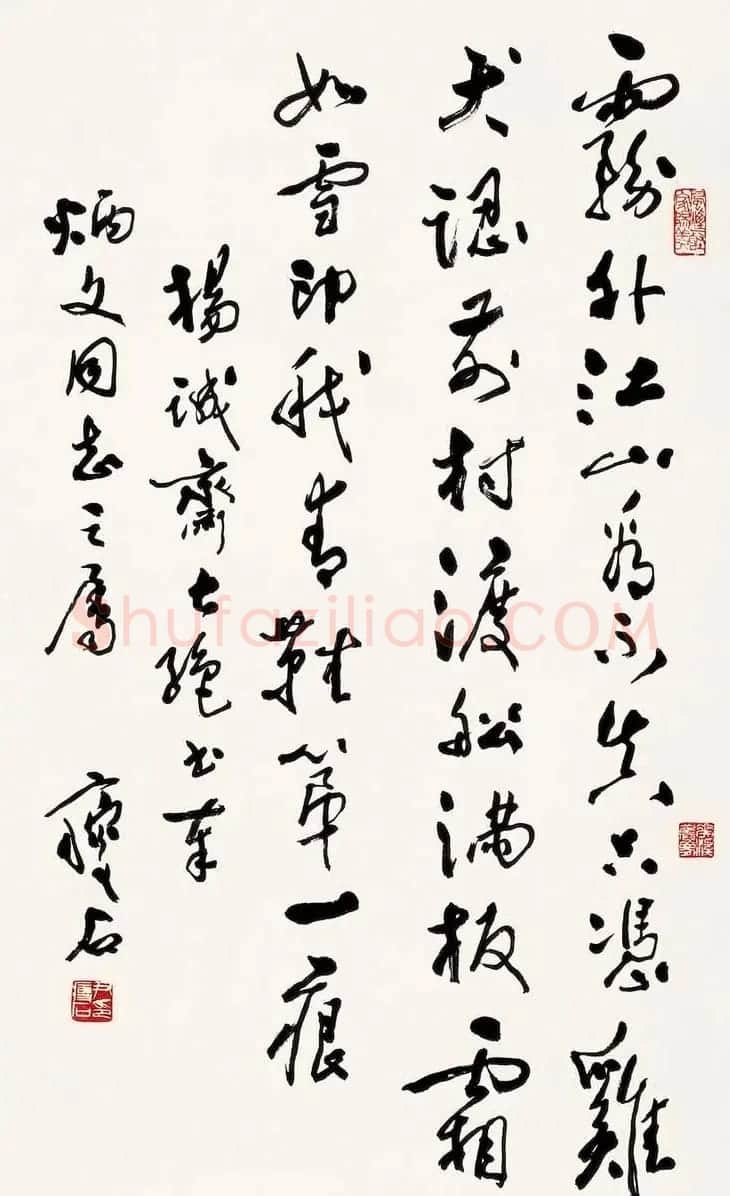 霧外江山看不真只憑雞
犬認前村渡船滿板霜
如雪印我青鞋第一痕
楊誠齋七絕書奉
炳文同志之屬
瘦石
Shufaziliao.COM